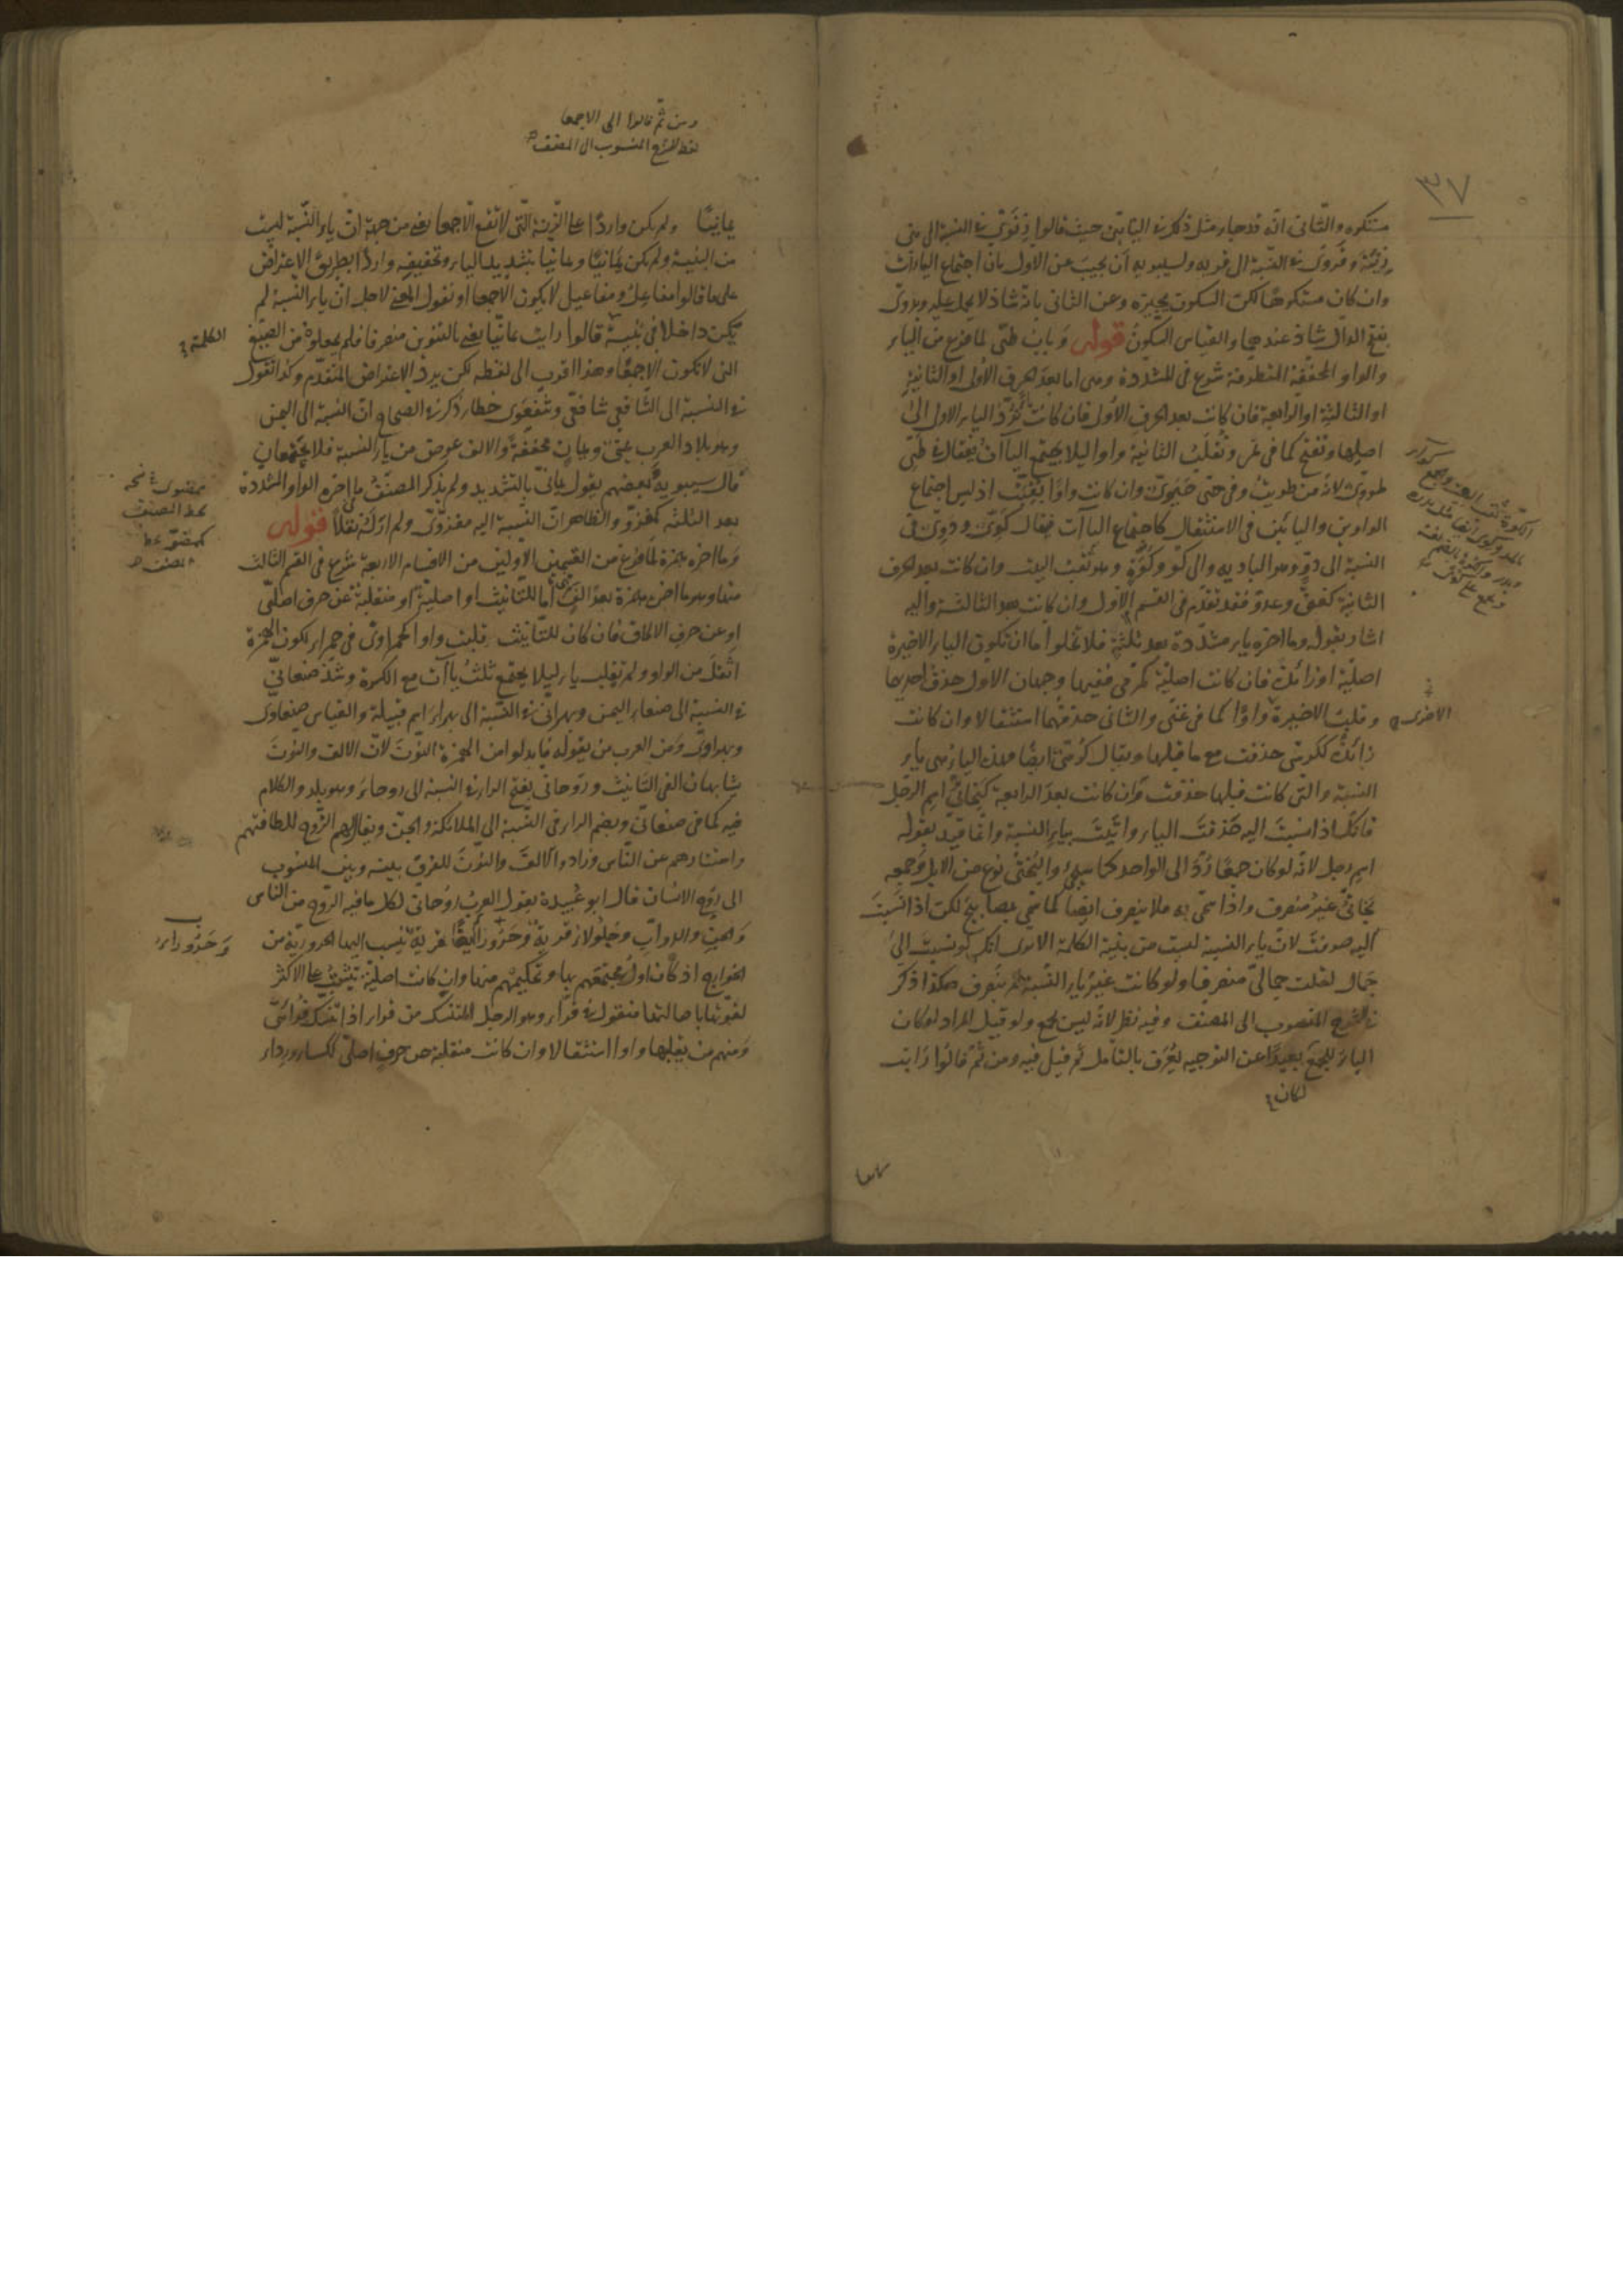 ٣٧
مستكره والثانى انه قد جاء مثل ذلك فى اليائين حيث قالوا زنوىّ فى النسبة الى بنى
زنية وقروىّ فى النسبة الى قرية ولسيبويه أن يجيب عن الاول بأن اجتماع الياآت
وان كان مستكرها لكن السكون يجبره وعن الثانى بانه شاذ لا يحمل عليه وبدوىّ
بفتح الدال شاذ عندهما والقياس السكون قوله وباب طىّ لما فرغ من الياء
والواو المخففة المتطرفة شرع فى المشددة وهى اما بعد الحرف الأول او الثانية
او الثالثة او الرابعة فان كانت بعد الحرف الأول فان كانت ياء تردّ الياء الاولى الى
اصلها وتفتح كما فى نمر وتقلب الثانية واوا ليلا يجتمع الياآت فيقال فى طىّ
طووىّ لانه من طويت وفى حىّ حيوىّ وان كانت واوًا بقيت اذ ليس اجتماع
الواوين واليائين فى الاستثقال كاجتماع الياآت فيقال كوّىّ ودوّىّ فى
النسبة الى دوّ وهو البادية والى كوّ وكوّة وهو ثقب البيت وان كانت بعد الحرف
الثانية كغنىّ وعدوّ فقد تقدّم فى القسم الأول وان كانت بعد الثالثة واليه
اشار بقوله وما اخره ياء مشدّدة بعد ثلثة فلا تخلوا اما ان تكون الياء الاخيرة
اصلية او زائدة فان كانت اصلية كمرمى ففيها وجهان الاول حذف احديهما
وقلبت الاخيرة واوًا كما فى غنىّ والثانى حذفهما استثقالا وان كانت
زائدة ككرسىّ حذفت مع ما قبلها ويقال كرسىّ ايضا وهذه الياء هى ياء
النسبة والتى كانت قبلها حذفت وان كانت بعد الرابعة كبخاتىّ اسم الرجل
فانك اذا نسبت اليه حذفت الياء وأتيت بياء النسبة وانما قيد بقوله
اسم رجل لانه لو كان جمعًا ردّ الى الواحد كما سيجئ والبختى نوع من الابل وجمعه
بخاتىّ غير منصرف واذا سمّى به فلا ينصرف ايضا كما سمّى بمصابيح لكن اذا نسبت
اليه صرفت لان ياء النسبة ليست من بنية الكلمة الا ترى انك لو نسبت الى
جمال لقلت جمالىّ منصرفا ولو كانت غير ياء النسبة لم ينصرف هكذا ذكر
فى الشرح المنسوب الى المصنف وفيه نظر لانه ليس بجمع ولو قيل المراد لو كان
الياء للجمع بعيدًا عن التوجيه يعرف بالتامل ثم قيل فيه ومن ثم قالوا رأيت
لكان
الاخرى
ومن ثم قالوا الى الاجمعا
لفظ الشرح المنسوب الى المصنف
يمانيًا ولم يكن واردًا على الزنة التى لا تقع الّا جمعا يعنى من جهة ان ياء النسبة ليست
من البنية ولم يكن يمانيًا ويمانيا بتشديد الياء وتخفيفه واردا بطريق الاعتراض
على ما قالوا مفاعل ومفاعيل لا يكون الا جمعا او نقول المعنى لاجل ان ياء النسبة لم
يكن داخلا فى بنية قالوا رايت يمانيّا يعنى بالتنوين منصرفا فلم يجعلوه من الصيغ
التى لا تكون الا جمعًا وهذا اقرب الى لفظه لكن يرد الاعتراض المتقدّم وكذا نقول
فى النسبة الى الشافعى شافعىّ وشفعوى خطأ وذكر فى الصحاح انّ النسبة الى اليمن
وهو بلاد العرب يمنىّ ويمانٍ مخففة والالف عوض من ياء النسبة فلا يجتمعان
قال سيبويه وبعضهم يقول يمانىّ بالتشديد ولم يذكر المصنّف ما اخره الواو المشددة
بعد الثلثة كمغزوّ والظاهر انّ النسبة اليه مغزوّىّ ولم ار له نقلًا قوله
وما اخره همزة لما فرغ من القسمين الاولين من الاقسام الاربعة شرع فى القسم الثالث
منها وهو ما اخره همزة بعد الف وهى اما للتانيث او اصلية او منقلبة عن حرف اصلىّ
او عن حرف الالحاق فان كان للتانيث قلبت واوا كحمراوىّ فى حمراء لكون الهمزة
اثقل من الواو ولم تقلب ياء ليلا يجتمع ثلث ياآت مع الكسرة وشذ صنعانىّ
فى النسبة الى صنعاء اليمن وبهرانىّ فى النسبة الى بهراء اسم قبيلة والقياس صنعاوىّ
وبهراوىّ ومن العرب من يقوله فابدلوا من الهمزة النون لانّ الالف والنون
يشابهان الفى التانيث وروحانى بفتح الراء فى النسبة الى روحاء وهو بلد والكلام
فيه كما فى صنعانىّ وبضم الراء فى النسبة الى الملائكة والجن ويقال لهم الروح للطافتهم
واستتارهم عن الناس وزادوا الالف والنون للفرق بينه وبين المنسوب
الى روح الانسان قال ابو عبيدة يقول العرب روحانى لكل ما فيه الروح من الناس
والجن والدوابّ وجلولاء قرية وحروراء ايضًا قرية ينسب اليها الحرورية من
الخوارج اذ كان اول مجتمعهم بها وتحكيمهم منها وان كانت اصلية تثبت على الاكثر
لقوتها باصالتها فتقول فى قرّاء وهو الرجل المتنسك من قرأ اذا تنسك قرّائىّ
ومنهم من يقلبها واوا استثقالا وان كانت منقلبة عن حرف اصلىّ ككساء ورداء
الكلمة
كمغزوّ بخط
المصنف
وحروراء